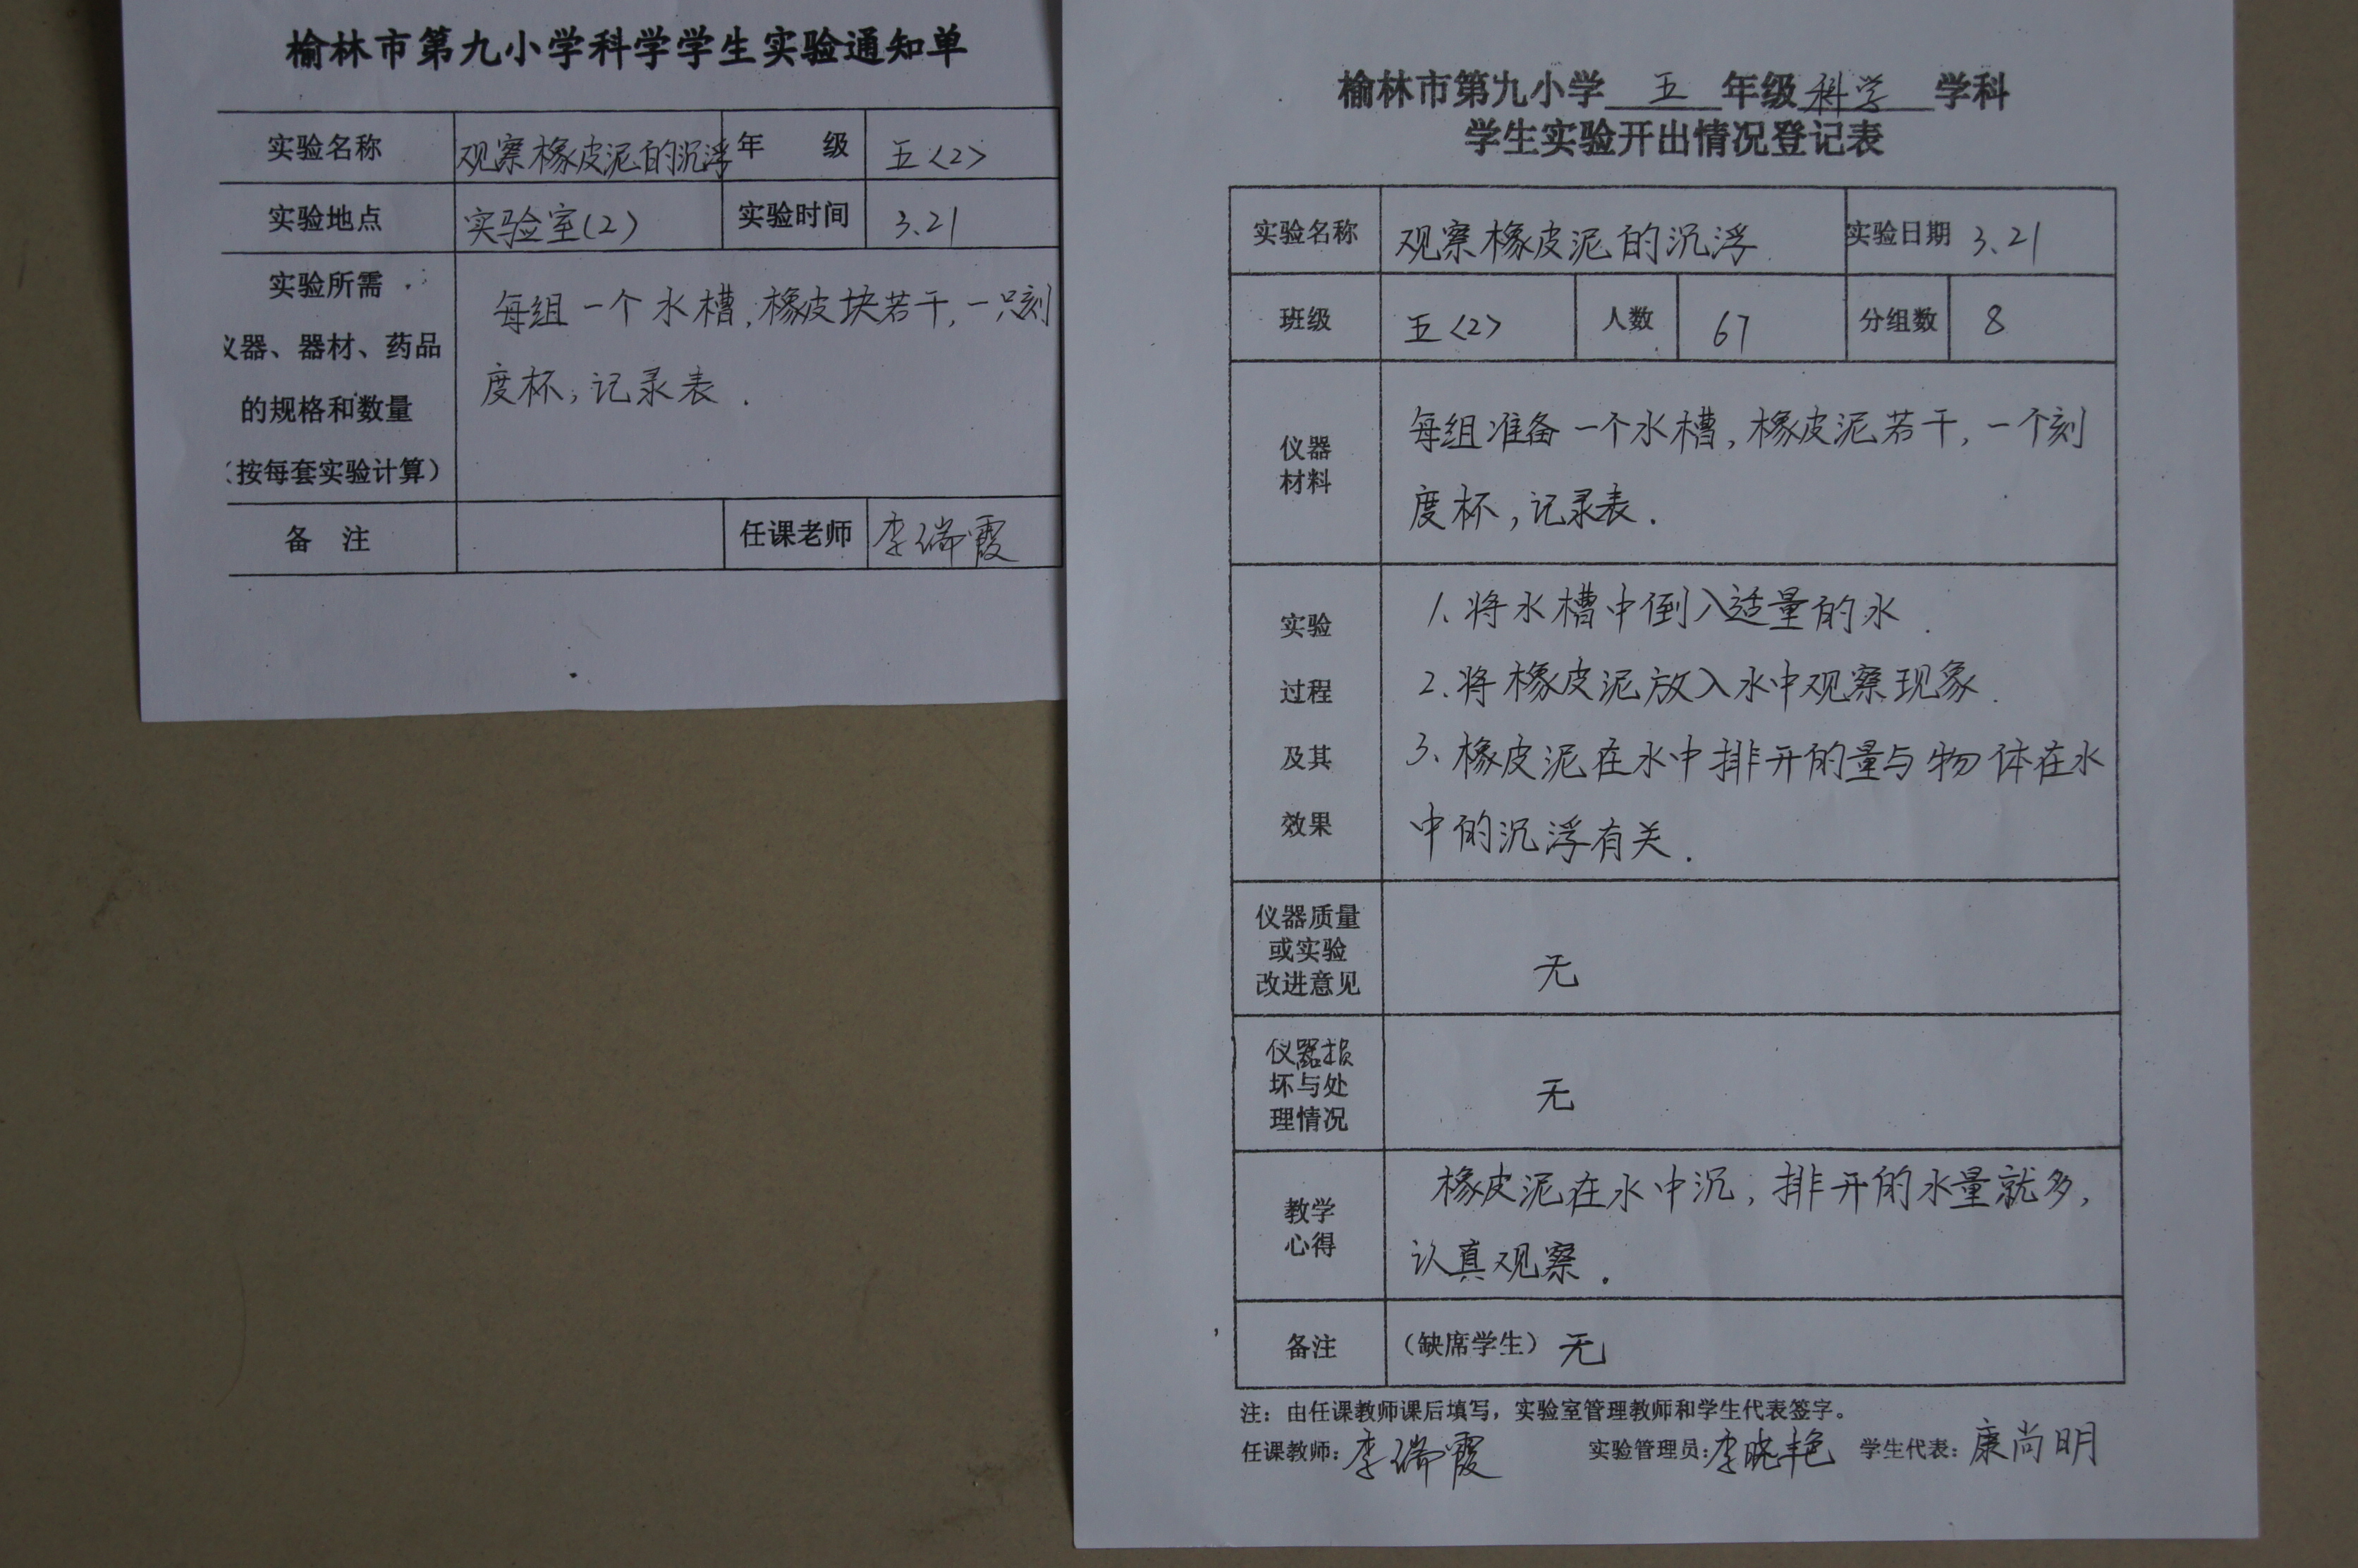 榆林市第九小学科学学生实验通知单
实验名称 观察橡皮泥的沉浮 年 级 五<2>
实验地点 实验室(2) 实验时间 3.21
实验所需
仪器、器材、药品
的规格和数量
(按每套实验计算)
每组一个水槽,橡皮块若干,一只刻
度杯,记录表.
备 注 任课老师 李瑞霞
榆林市第九小学 五 年级 科学 学科
学生实验开出情况登记表
实验名称 观察橡皮泥的沉浮 实验日期 3.21
班级 五<2> 人数 67 分组数 8
仪器
材料
每组准备一个水槽,橡皮泥若干,一个刻
度杯,记录表.
实验
过程
及其
效果
1.将水槽中倒入适量的水.
2.将橡皮泥放入水中观察现象.
3、橡皮泥在水中排开的量与物体在水
中的沉浮有关.
仪器质量
或实验
改进意见
无
仪器损
坏与处
理情况
无
教学
心得
橡皮泥在水中沉,排开的水量就多,
认真观察.
备注 (缺席学生) 无
注：由任课教师课后填写，实验室管理教师和学生代表签字。
任课教师：李瑞霞 实验管理员：李晓艳 学生代表：康尚明